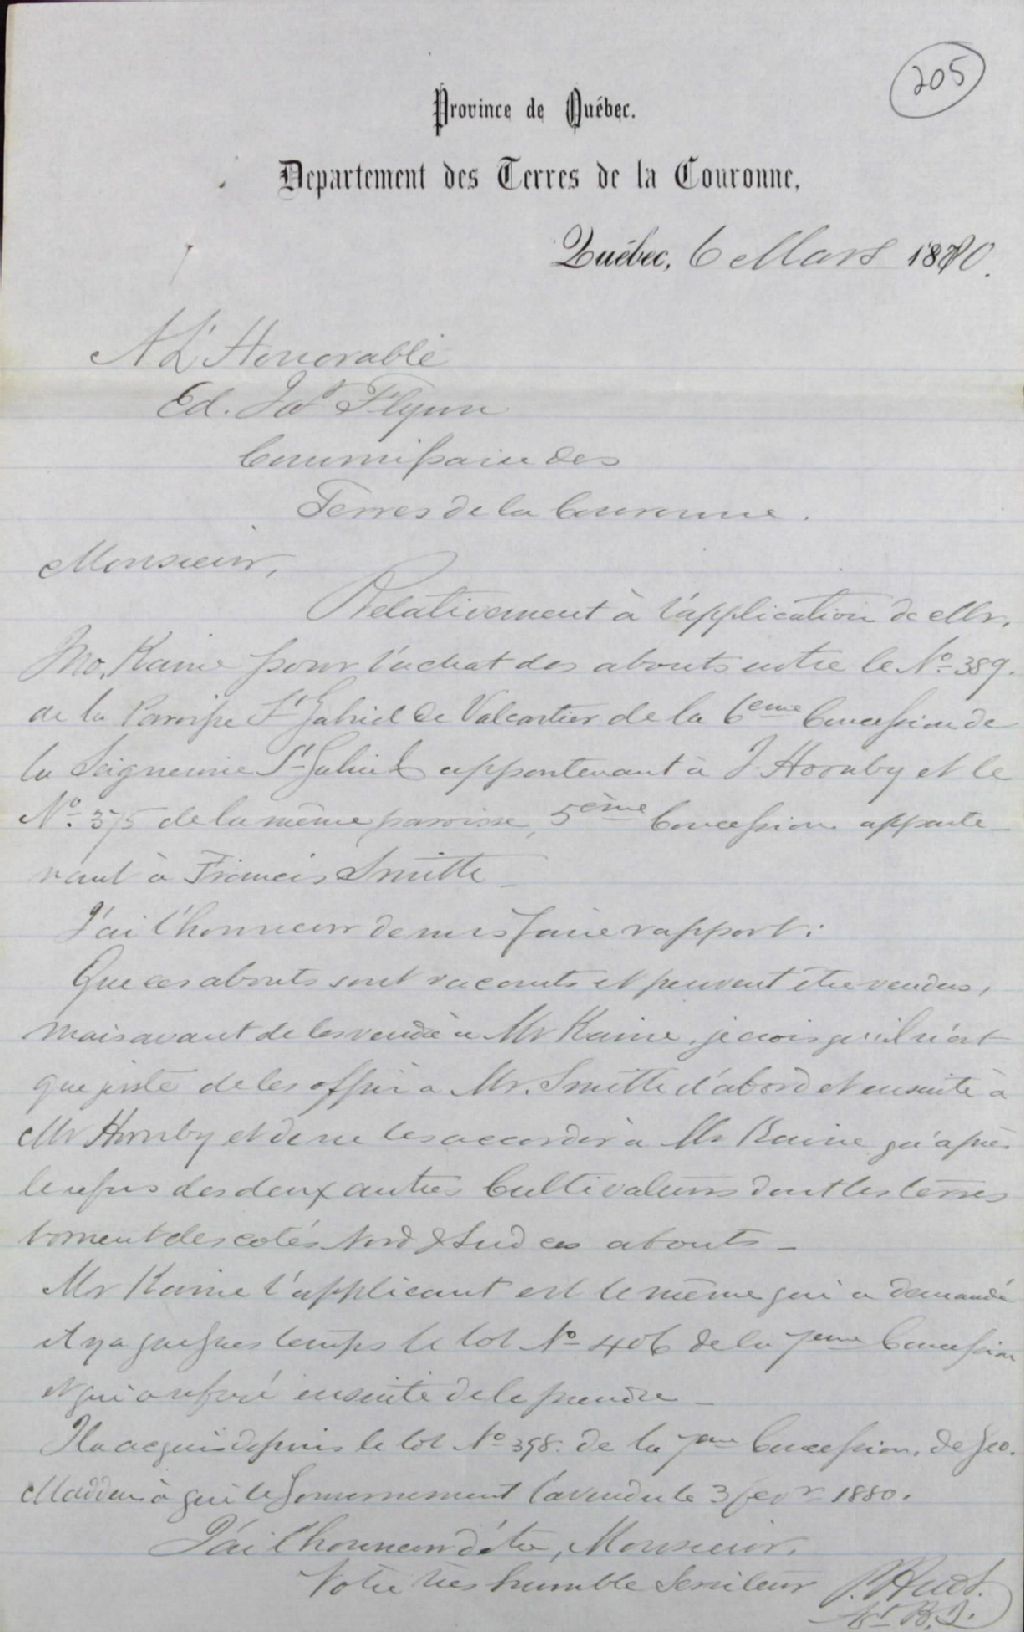 205
Province de Québec.
Departement des Terres de la Couronne,
Québec, 6 Mars 1880.
A L'Honorable
Ed. Jas Flynn
Commissaire des
Terres de la Couronne.
Monsieur,
Relativement à l'application de Mr.
Jno. Kaine pour l'achat des abouts entre le No. 389.
de la Paroisse St Gabriel de Valcartier de la 6eme Concession de
la Seigneurie St Gabriel appartenant à J Hornby et le
No. 375 de la même paroisse, 5ème Concession apparte
nant à Francis Smitte
J'ai l'honneur de vous faire rapport:
Que ces abouts sont vacants et peuvent être vendus,
mais avant de les vendre à Mr Kaine, je crois qu'il n'est
que juste de les offrir à Mr. Smitte d'abord et ensuite à
Mr Hornby et de ne les accorder à Mr Kaine qu'après
le refus des deux autres Cultivateurs dont les terres
bornent des cotés Nord & Sud ces abouts _
Mr Kaine l'applicant est le même qui a demandé
il y a quelques temps le lot No 406 de la 7eme Concession
et qui a refusé ensuite de le prendre _
Il a acquis depuis le lot No 398. de la 7eme Concession, de Geo.
Madden à qui le Gouvernement l'a vendu le 3 fevr 1880.
J'ai l'honneur d'être, Monsieur,
Votre très humble Serviteur